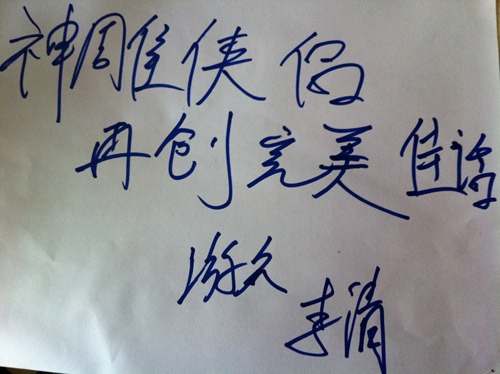 神雕侠侣
再创完美佳话
李清